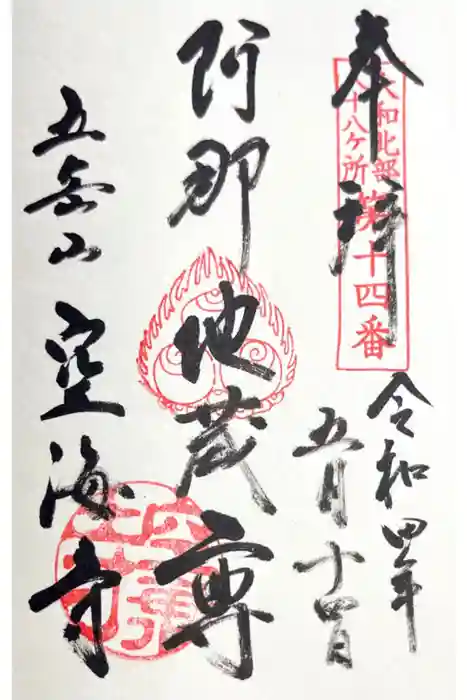 奉拝
大和北部
八十八ケ所
第十四番
令和四年
五月十四日
阿那地蔵尊
五岳山 空海寺